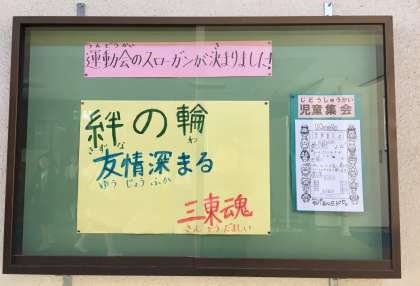 うんどうかい き
運動会のスローガンが決まりました!
絆の輪
きずな わ
友情深まる
ゆうじょうふか
三東魂
さんとうだましい
じどうしゅうかい
児童集会